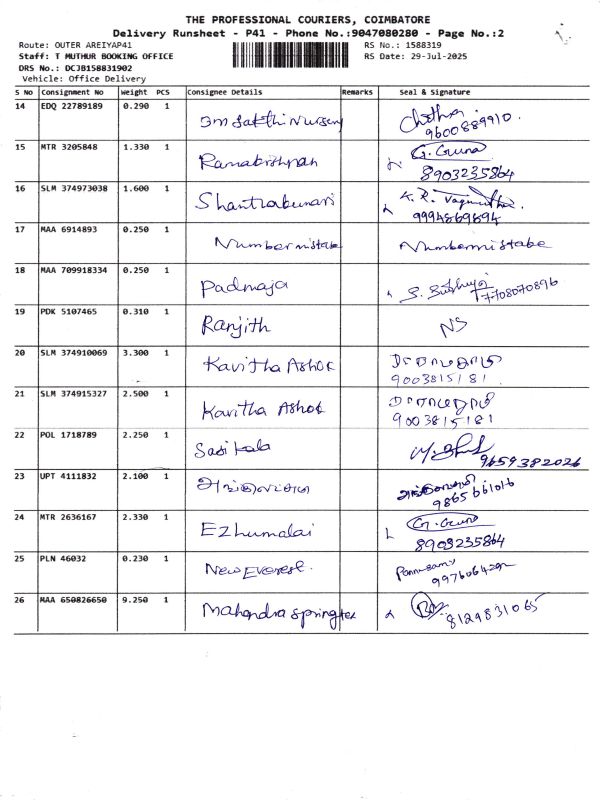 THE PROFESSIONAL COURIERS, COIMBATORE
Delivery Runsheet - P41 - Phone No.:9047080280 - Page No.:2
Route: OUTER AREIYAP41 RS No.: 1588319
Staff: T MUTHUR BOOKING OFFICE RS Date: 29-Jul-2025
DRS No.: DCJB158831902
Vehicle: Office Delivery
S No Consignment No Weight PCS Consignee Details Remarks Seal & Signature
14 EDQ 22789189 0.290 1 Sakthi Nursery
9600889910
15 MTR 3205848 1.330 1 Ramakrishnan G. Guna
8903235864
16 SLM 374973038 1.600 1 Shantrakumari K. R.
9994869694
17 MAA 6914893 0.250 1 Number mistake Number mistake
18 MAA 709918334 0.250 1 Padmaja S.
7708070896
19 PDK 5107465 0.310 1 Ranjith NS
20 SLM 374910069 3.300 1 Kavitha Ashok
9003815181
21 SLM 374915327 2.500 1 Kavitha Ashok
9003815181
22 POL 1718789 2.250 1 Sasi kala
9659382026
23 UPT 4111832 2.100 1
9865661016
24 MTR 2636167 2.330 1 Ezhumalai G. Guna
8903235864
25 PLN 46032 0.230 1 New Everest. Ponnusamy
26 MAA 650826650 9.250 1 Mahendra springtex
8129831065